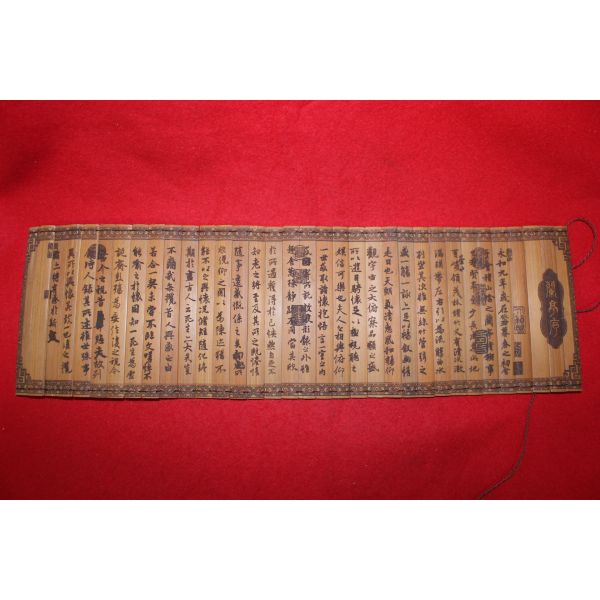 蘭亭序
永和九年歲在癸丑暮春之初會
稽山陰之蘭亭脩稧事
群賢畢至少長咸集此地
有崇山峻領茂林脩竹又有清流激
湍暎帶左右引以為流觴曲水
列坐其次雖無絲竹管弦之
盛一觴一詠亦足以暢敘幽情
是日也天朗氣清惠風和暢仰
觀宇宙之大俯察品類之盛
所以遊目騁懷足以極視聽之
娛信可樂也夫人之相與俯仰
一世或取諸懷抱悟言一室之內
寄所託放浪形骸之外雖
趣舍萬殊靜躁不同當其欣
於所遇蹔得於己怏然自足不
知老之將至及其所之既惓情
隨事遷感慨係之矣向之所
欣俛仰之閒以為陳迹猶不
能不以之興懷況脩短隨化終
期於盡古人云死生亦大矣豈
不痛哉每攬昔人興感之由
若合一契未嘗不臨文嗟悼不
能喻之於懷固知一死生為虛
誕齊彭殤為妄作後之視今
今之視昔悲夫故列
敘時人錄其所述雖世殊事
異所以興懷其致一也後之攬
者亦將有感於斯文